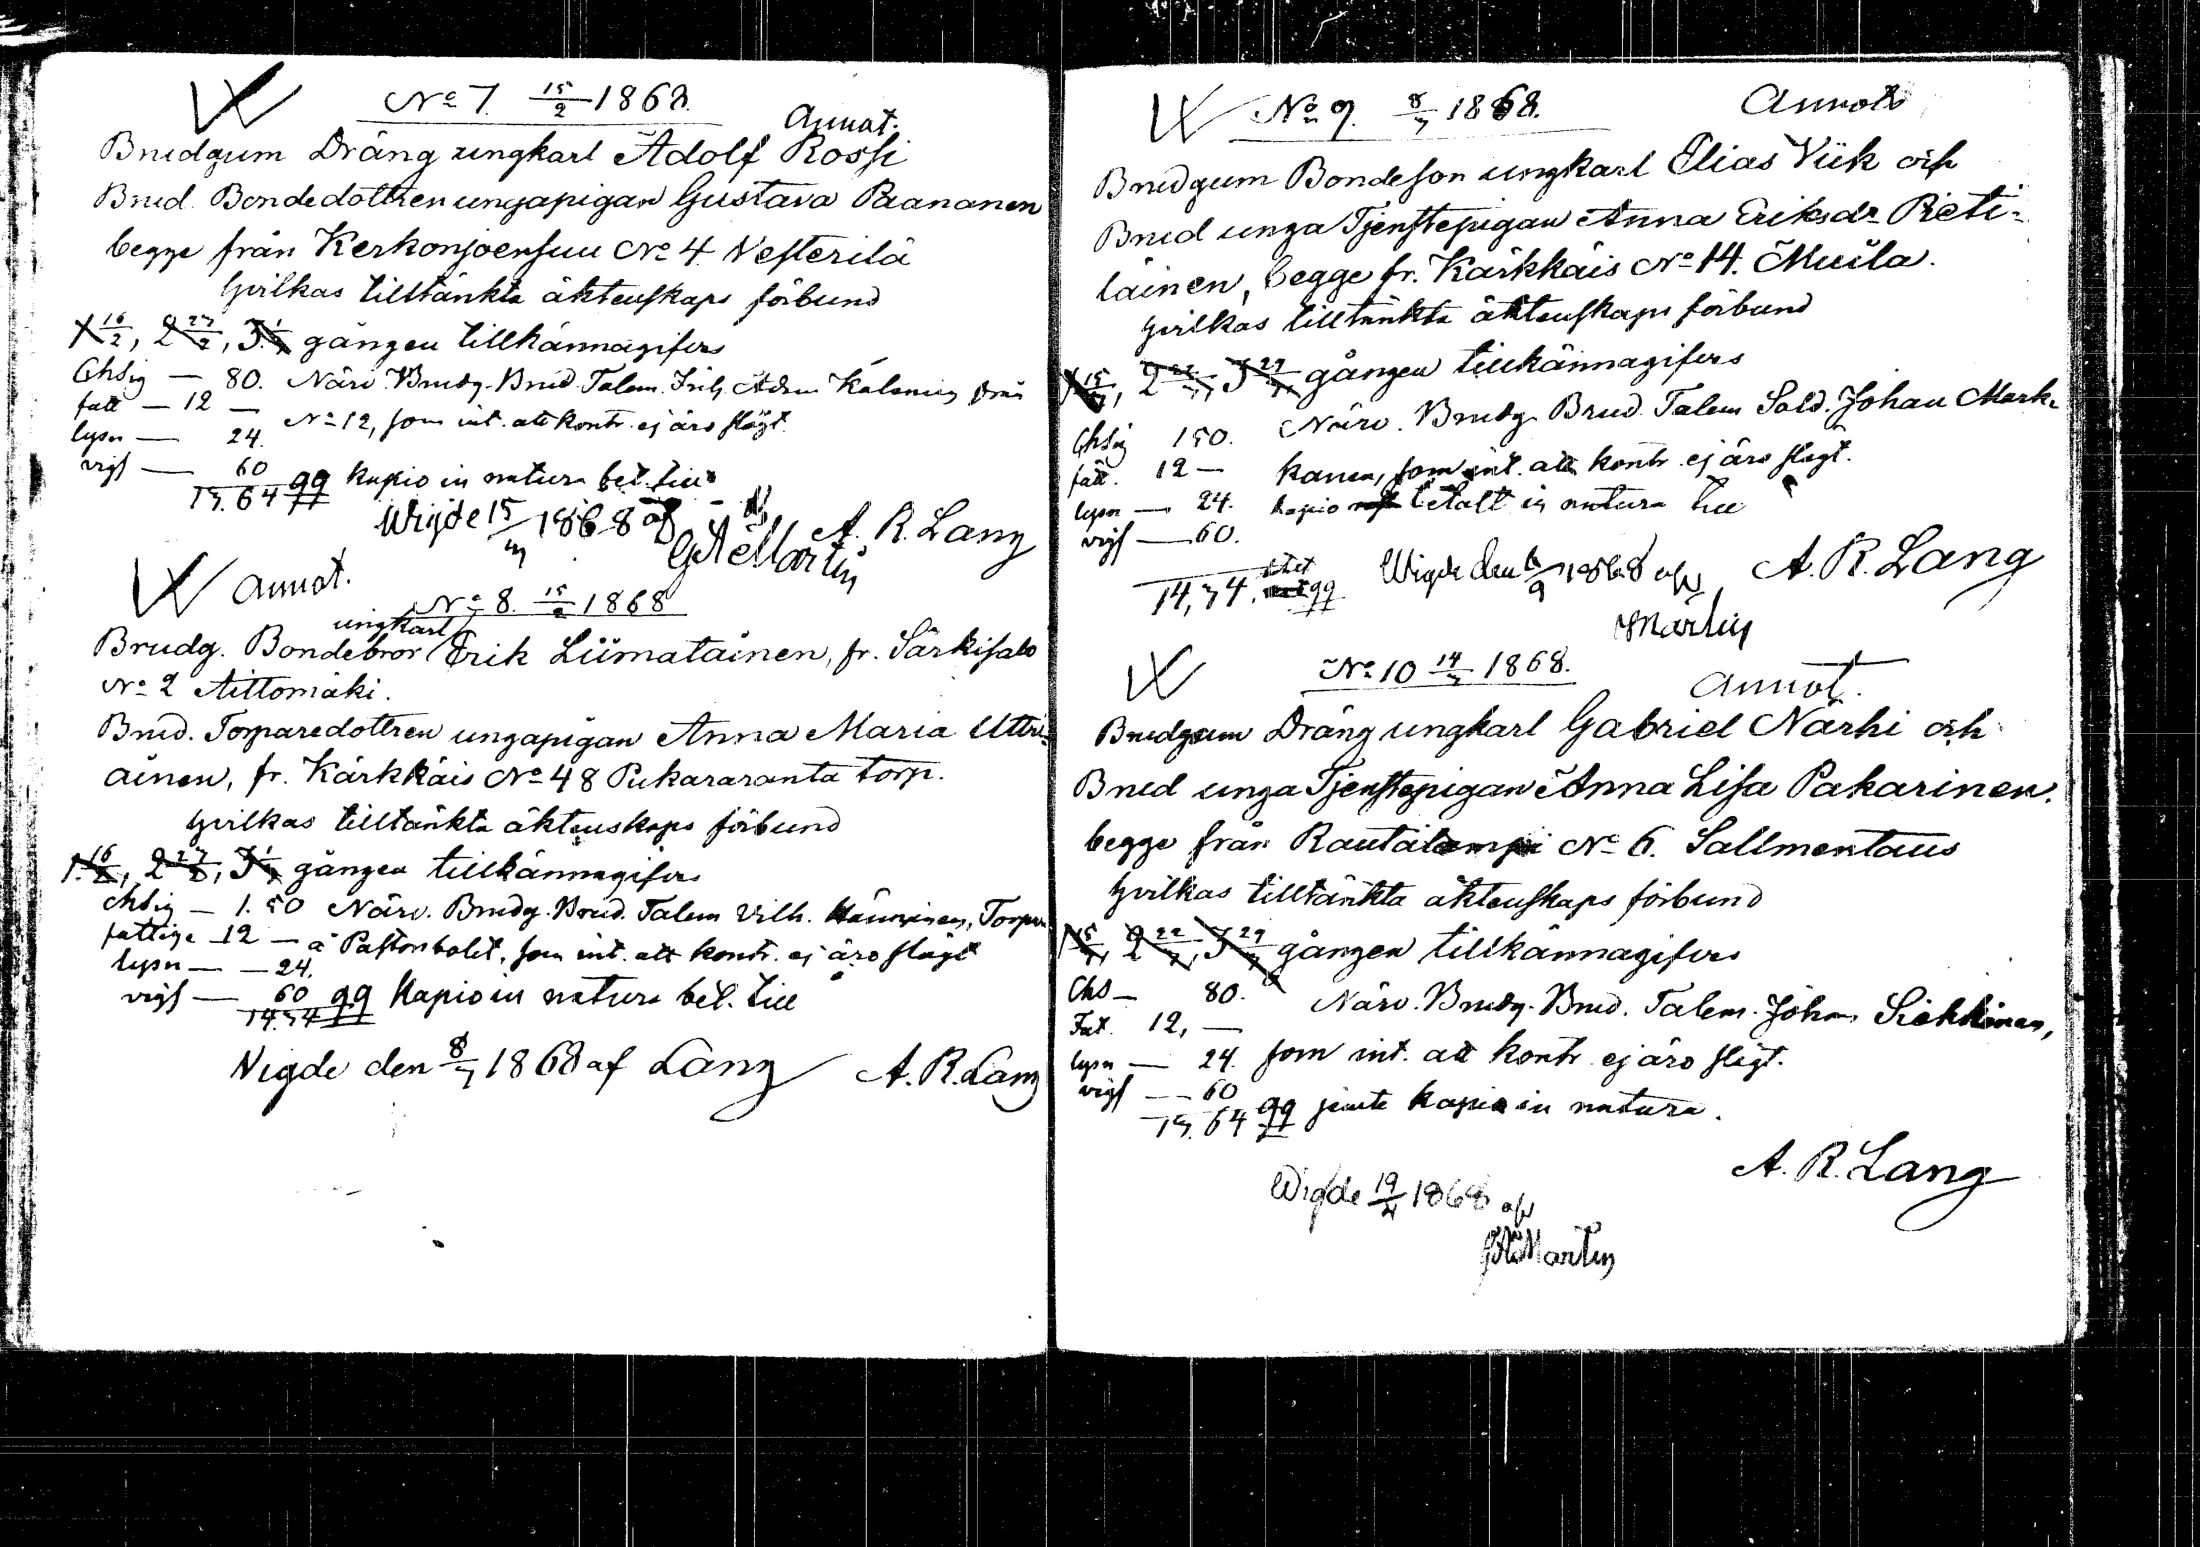 No 7. 15/2 1868.
Annot.
Brudgum Dräng ungkarl Adolf Rossi
Brud. Bondedottren ungapigan Gustava Paananen
begge från Kerkonjoensuu No 4 Vesterilä
hvilkas tilltänkta äktenskaps förbund
1 16/2, 2 23/2, 3 1/3 gången tillkännagifves
Chsig — 80. Närv. Brudg. Brud. Talem. Adam Kalanius från
fatt — 12 — No 12, som int. att kontr. ej äro slägt.
lysn — 24.
vigs — 60
13.64 qq kapio in natura bet. till
Wigde 15/3 1868 af
G A Martin
A. R. Lang
Annot.
No 8. 15/2 1868
ungkarl
Brudg. Bondebror Erik Liimatainen, fr. Särkisalo
No 2 Aittomäki.
Brud. Torparedottren ungapigan Anna Maria Uttri-
ainen, fr. Kärkkäis No 48 Pukararanta torp.
hvilkas tilltänkta äktenskaps förbund
1. 16/2, 2 23/2, 3 1/3 gången tillkännagifves
Chsig — 1.50 Närv. Brudg. Brud. Talem Vilh. Hänninen, Torpare
fattige — 12 — å Pastorsbolet, som int. att kontr. ej äro slägt
lysn — — 24.
vigs — 60 qq Kapio in natura bet. till
14.34
Vigde den 8/3 1868 af Lang
A. R. Lang
No 9. 8/3 1868.
Annot
Brudgum Bondeson ungkarl Elias Viik och
Brud unga Tjenstepigan Anna Eriksdr Pieti-
läinen, begge fr. Kärkkäis No 14. Muila.
hvilkas tilltänkta äktenskaps förbund
1 15/3, 2 22/3, 3 29/3 gången tillkännagifves
Chsig 150. Närv. Brudg. Brud. Talem Sold. Johan Mark-
fatt. 12 — kanen, som int. att kontr. ej äro slägt.
lysn — 24. kapio betalt in natura till
vigs — 60.
14,34. qq
Wigde den 6/9 1868 af
Martin
A. R. Lang
No 10 14/3 1868.
Annot.
Brudgum Dräng ungkarl Gabriel Närhi och
Brud unga Tjenstepigan Anna Lisa Pakarinen.
begge från Rautalampi No 6. Sallmentaus
hvilkas tilltänkta äktenskaps förbund
1 15/3, 2 22/3, 3 29/3 gången tillkännagifves
Chs — 80. Närv. Brudg. Brud. Talem. Johan Siekkinen,
Fat. 12, —
lysn — 24. som int. att kontr. ej äro slägt.
vigs — — 60
13.64 qq jemte kapio in natura.
A. R. Lang
Wigde 19/4 1868 af
G A Martin